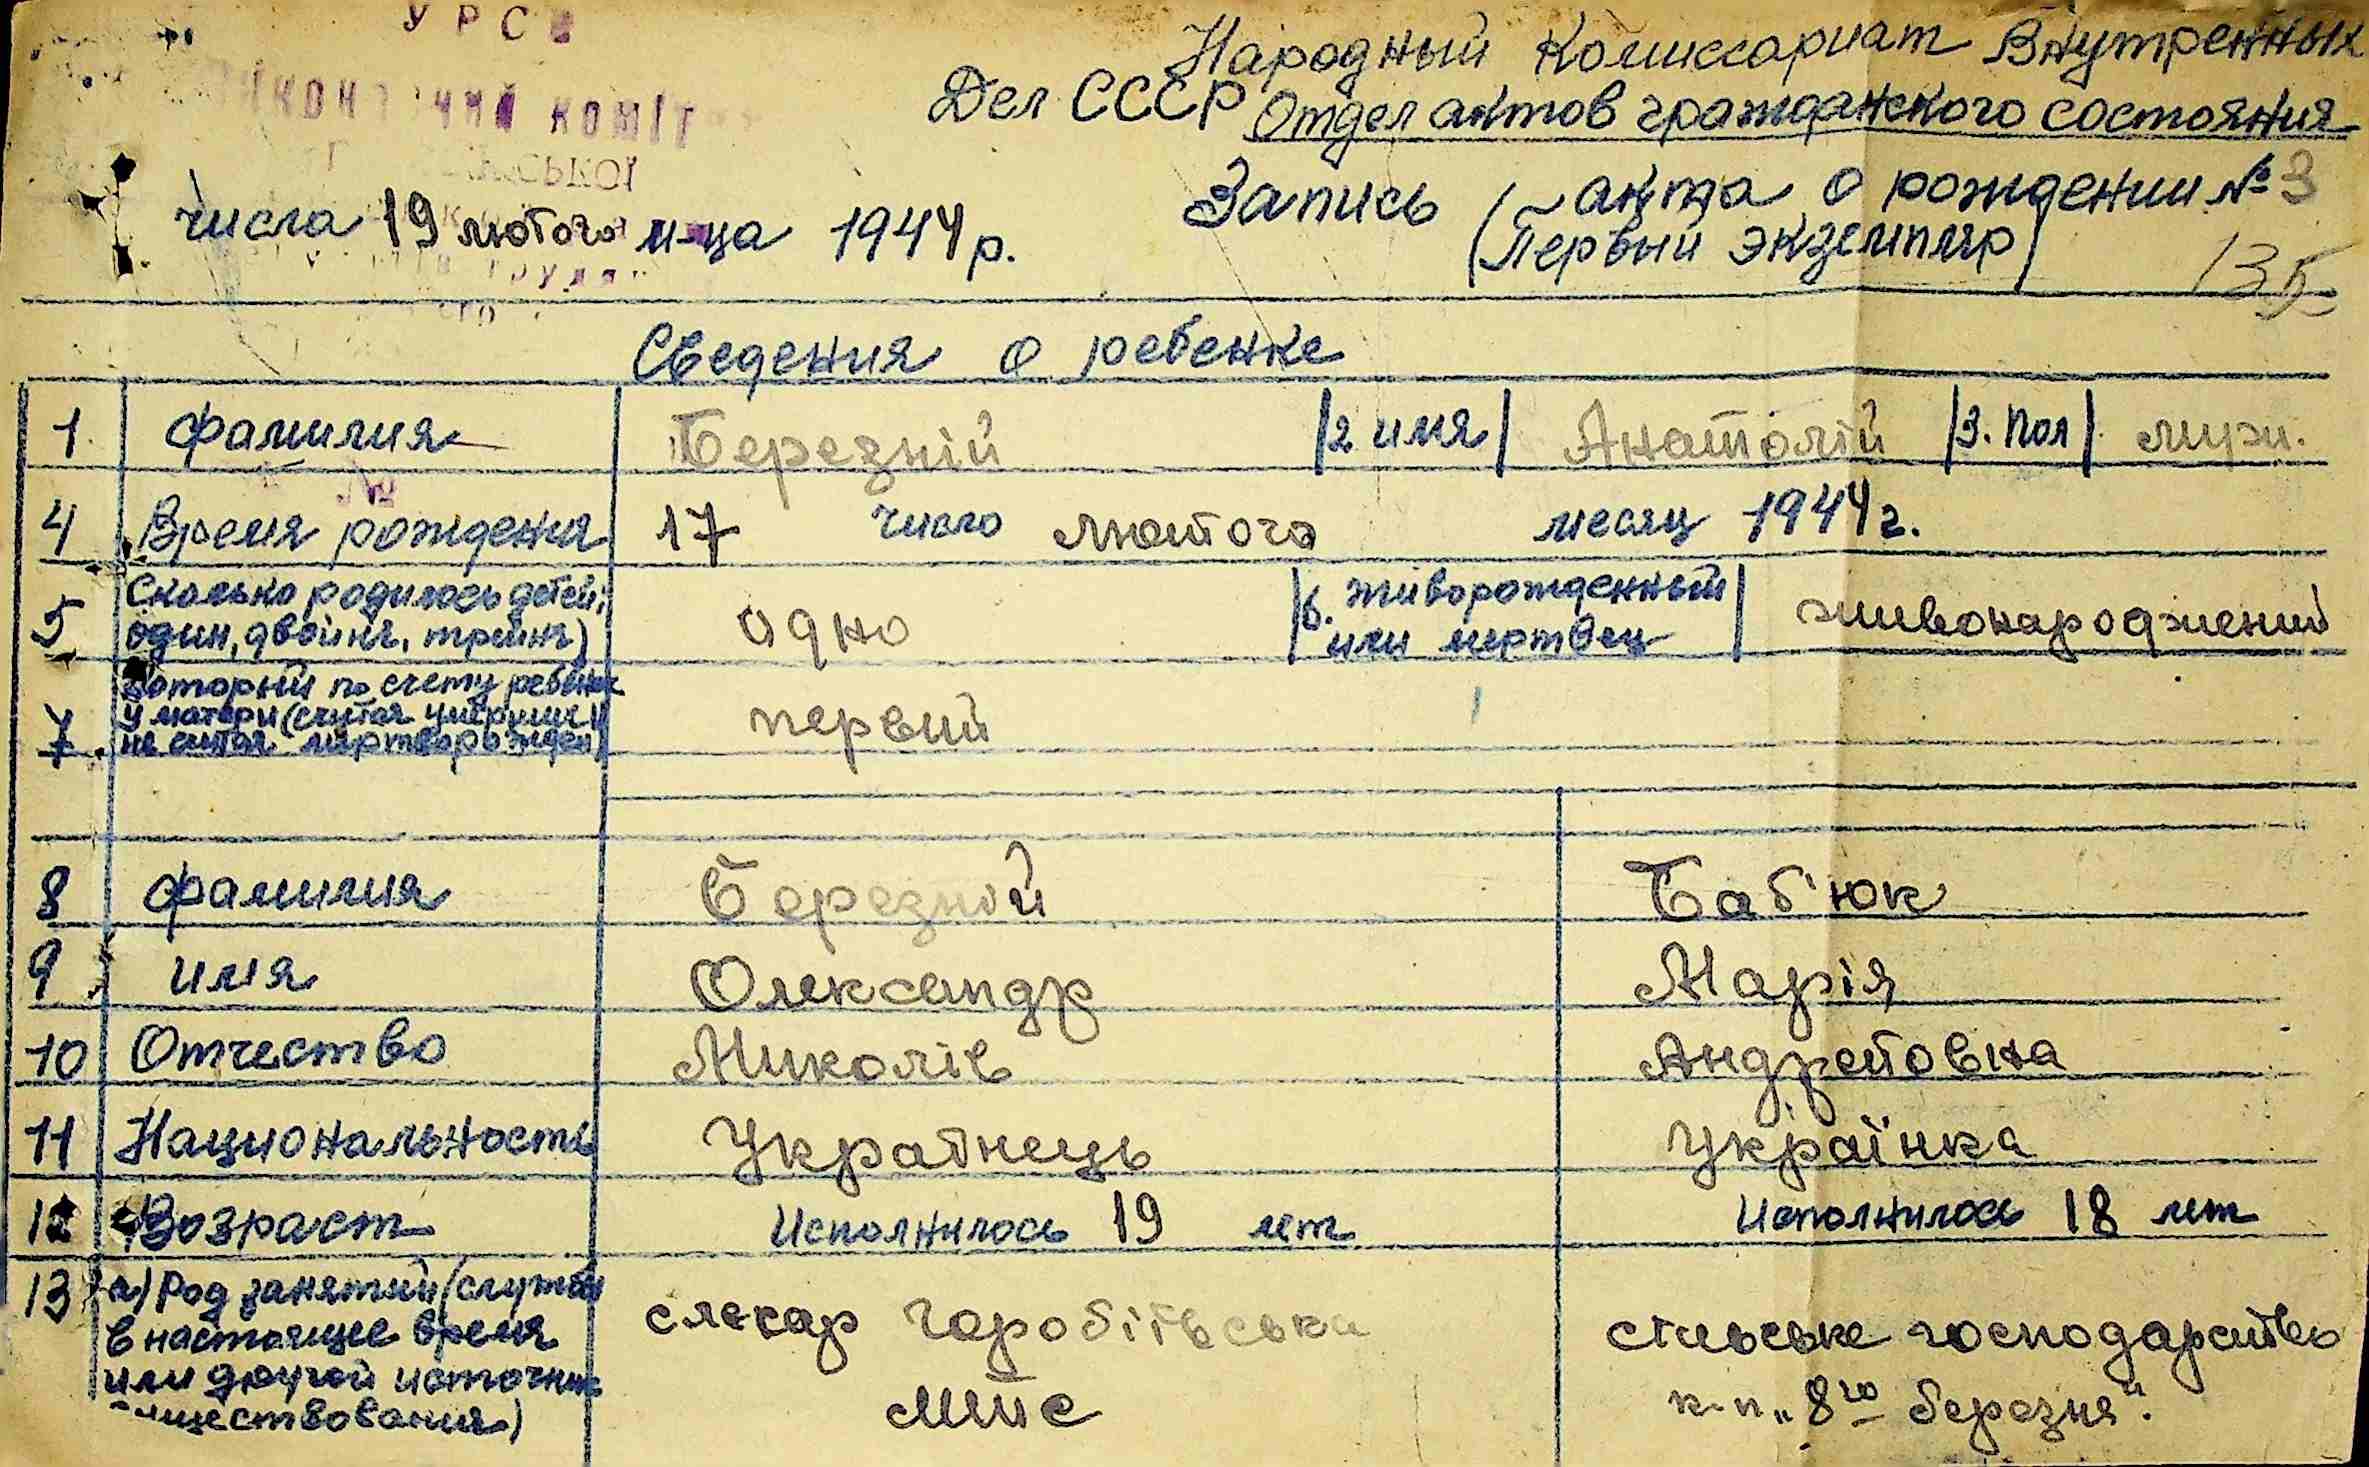 УРС
КОМІТ
Народный Комиссариат Внутренных
Дел СССР Отдел актов гражданского состояния
числа 19 лютого м-ца 1944 р.
Запись акта о рождении № 3
(Первый экземпляр)
135
Сведения о ребенке
1 Фамилия Березній 2 имя Анатолій 3. Пол муж.
4 Время рождения 17 число лютого месяц 1944 г.
5 Сколько родилось детей; один, двойня, тройня) одно 6. живорожденный или мертвец живонароджений
7 Который по счету ребенок у матери (считая умерших и не считая мертворожден) первий
8 Фамилия Березній Баб'юк
9 имя Олександр Марія
10 Отчество Миколів Андреївна
11 Национальность Українець Українка
12 Возраст Исполнилось 19 лет Исполнилось 18 лет
13 а) Род занятий (службы
в настоящее время
или другой источник
существования)
слюсар Горобіївська
МТС
сільське господарство
к-п „8го березня".